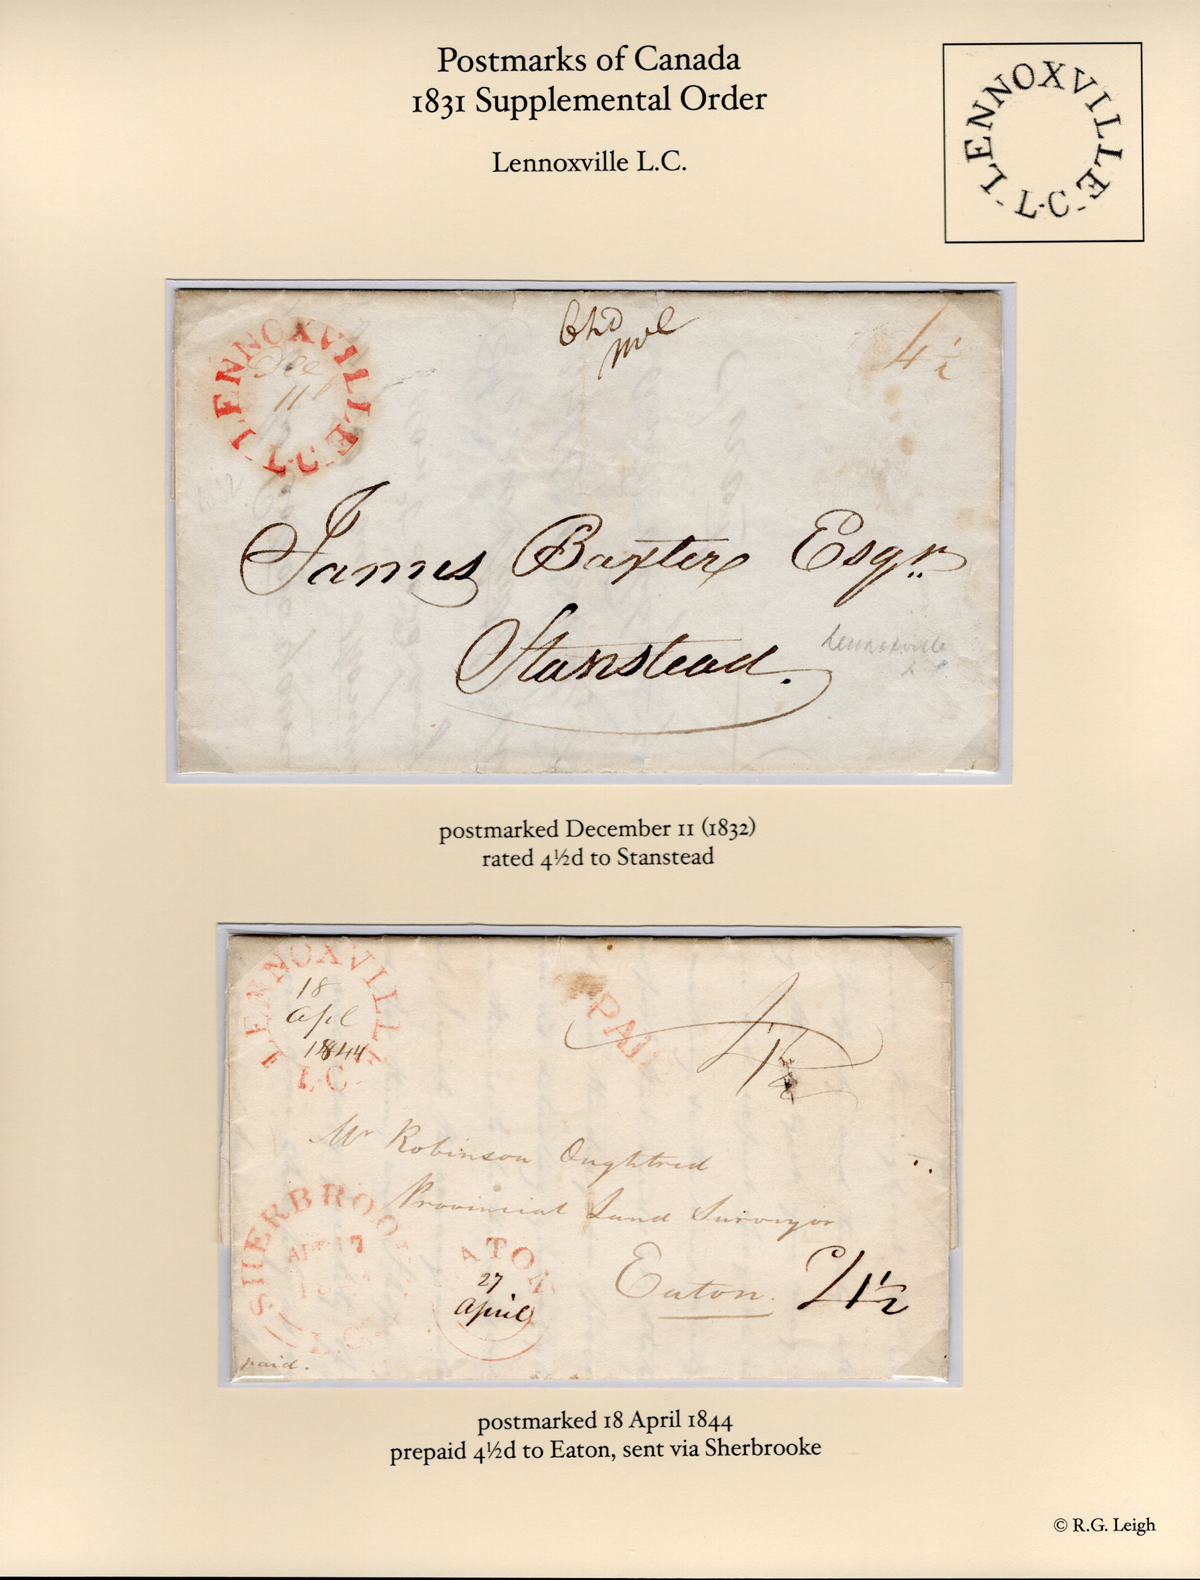 Postmarks of Canada
1831 Supplemental Order
Lennoxville L.C.
LENNOXVILLE
L.C
LENNOXVILLE
Dec
11
L.C
4½
James Baxter Esqr
Stanstead.
Lennoxville
postmarked December 11 (1832)
rated 4½d to Stanstead
LENNOXVILLE
18
Apl
1844
L.C
PAID
4½
Mr Robinson Oughtred
Provincial Land Surveyor
Eaton.
4½
SHERBROO
ATON
27
April
paid.
postmarked 18 April 1844
prepaid 4½d to Eaton, sent via Sherbrooke
© R.G. Leigh